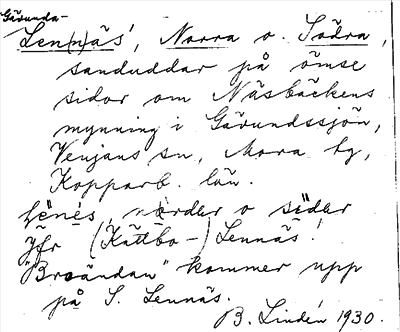 Gärunda-
Len(n)äs, Norra o. Södra,
sanduddar på ömse
sidor om Näsbäckens
mynning i Gärundssjön,
Venjans sn, Mora tg,
Kopparb. län.
lènés, nòrdar o sìdar
Jfr (Kättbo-) Lennäs!
"Broändan" kommer upp
på S. Lennäs.
B. Lindén 1930.